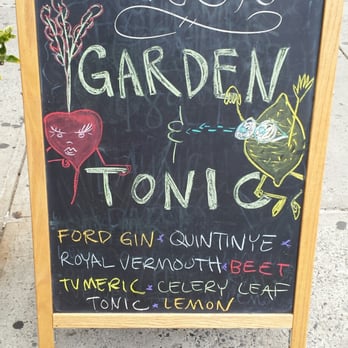 GARDEN
&
TONIC
FORD GIN * QUINTINYE *
ROYAL VERMOUTH * BEET
TUMERIC * CELERY LEAF
TONIC * LEMON